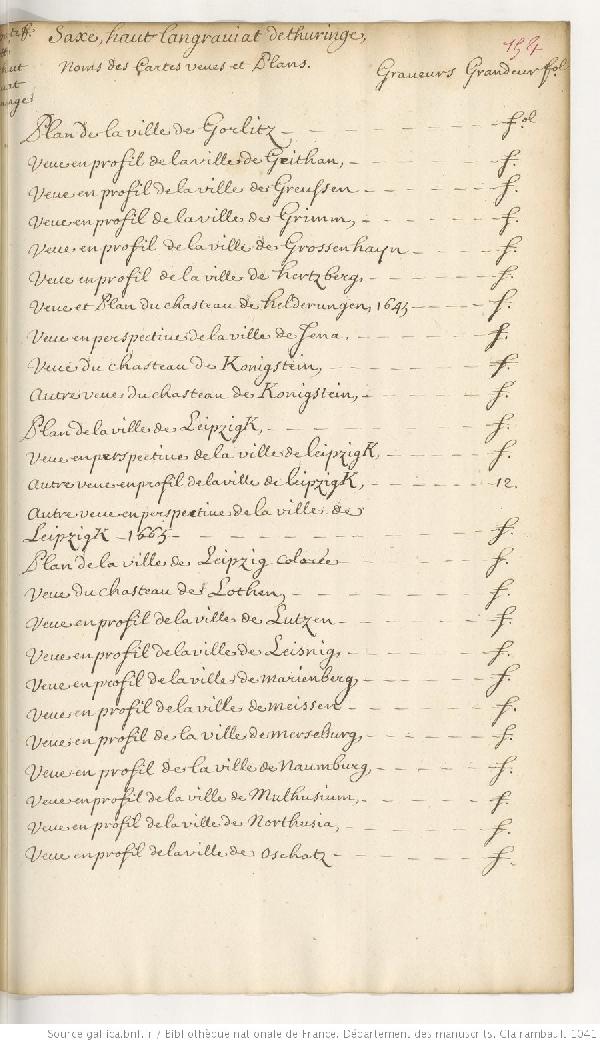 Saxe, haut langraviat de thuringe,
154
Noms des Cartes veues et Plans. Graveurs Grandeur fol
Plan de la ville de Gorlitz - fol
Veue en profil de la ville de Geithan, - f.
Veue en profil de la ville de Greussen - f.
Veue en profil de la ville de Grimm, - f.
Veue en profil de la ville de Grossenhayn - f.
Veue en profil de la ville de hertzberg, - f.
Veue et Plan du chasteau de helderungen, 1645 - f.
Veue en perspective de la ville de Jena. - f.
Veue du chasteau de Konigstein, - f.
Autre veue du chasteau de Konigstein, - f.
Plan de la ville de LeipzigK, - f.
Veue en perspective de la ville de leipzigK, - f.
Autre veue en profil de la ville de leipzigK, - 12.
Autre veue en perspective de la ville de
LeipzigK - 1665 - f.
Plan de la ville de Leipzig colorée - f.
Veue du chasteau de Lothen, - f.
Veue en profil de la ville de Lutzen - f.
Veue en profil de la ville de Leisnig, - f.
Veue en profil de la ville de marienberg, - f.
Veue en profil de la ville de meissen - f.
Veue en profil de la ville de merseburg, - f.
Veue en profil de la ville de Naumburg, - f.
Veue en profil de la ville de Mulhusium, - f.
Veue en profil de la ville de Northusia, - f.
Veue en profil de la ville de Oschatz - f.
Source gallica.bnf.fr / Bibliothèque nationale de France. Département des manuscrits. Clairambault 1041